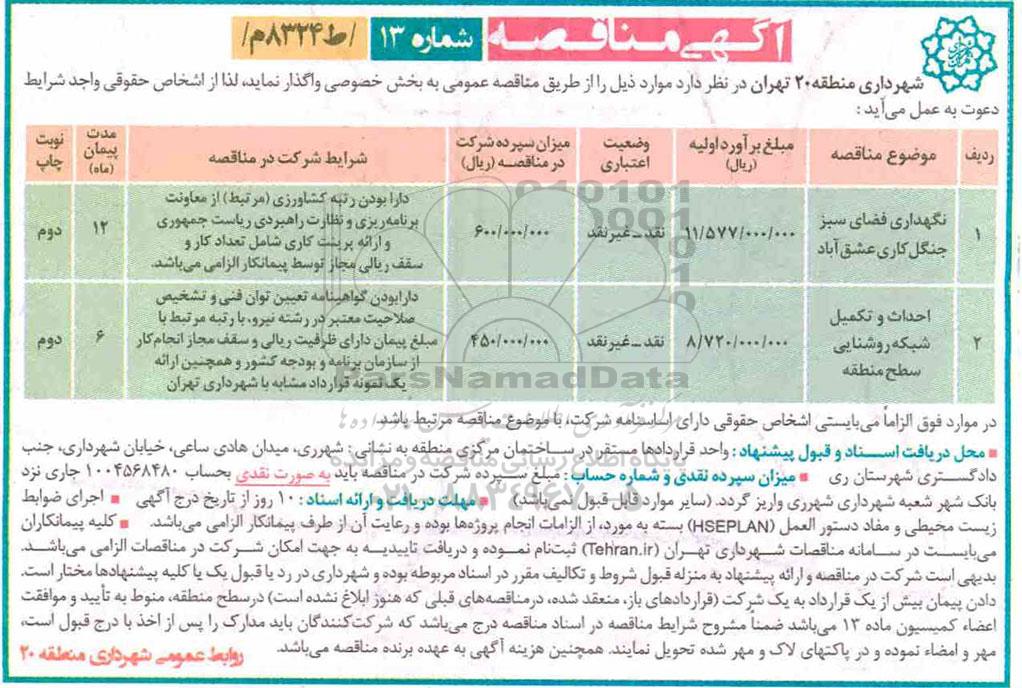 آگهی مناقصه
شماره ۱۳
/ط۸۳۲۴م/
شهرداری منطقه۲۰ تهران در نظر دارد موارد ذیل را از طریق مناقصه عمومی به بخش خصوصی واگذار نماید، لذا از اشخاص حقوقی واجد شرایط
دعوت به عمل می‌آید :
ردیف
موضوع مناقصه
مبلغ برآورد اولیه
(ریال)
وضعیت
اعتباری
میزان سپرده شرکت
در مناقصه (ریال)
شرایط شرکت در مناقصه
مدت
پیمان
(ماه)
نوبت
چاپ
۱
نگهداری فضای سبز
جنگل کاری عشق آباد
۱۱/۵۷۷/۰۰۰/۰۰۰
نقد ـ غیرنقد
۶۰۰/۰۰۰/۰۰۰
دارا بودن رتبه کشاورزی (مرتبط) از معاونت
برنامه‌ریزی و نظارت راهبردی ریاست جمهوری
و ارائه پرینت کاری شامل تعداد کار و
سقف ریالی مجاز توسط پیمانکار الزامی می‌باشد.
۱۲
دوم
۲
احداث و تکمیل
شبکه روشنایی
سطح منطقه
۸/۷۲۰/۰۰۰/۰۰۰
نقد ـ غیرنقد
۴۵۰/۰۰۰/۰۰۰
دارابودن گواهینامه تعیین توان فنی و تشخیص
صلاحیت معتبر در رشته نیرو، با رتبه مرتبط با
مبلغ پیمان دارای ظرفیت ریالی و سقف مجاز انجام‌کار
از سازمان برنامه و بودجه کشور و همچنین ارائه
یک نمونه قرارداد مشابه با شهرداری تهران
۶
دوم
ParsNamadData
در موارد فوق الزاماً می‌بایستی اشخاص حقوقی دارای اساسنامه شرکت، با موضوع مناقصه مرتبط باشد.
پایگاه اطلاع رسانی مناقصه و مزایده
▪ محل دریافت اسناد و قبول پیشنهاد : واحد قراردادها مستقر در ساختمان مرکزی منطقه به نشانی : شهرری، میدان هادی ساعی، خیابان شهرداری، جنب
دادگستری شهرستان ری ▪ میزان سپرده نقدی و شماره حساب : مبلغ سپرده شرکت در مناقصه باید به صورت نقدی بحساب ۱۰۰۴۵۶۸۴۸۰ جاری نزد
بانک شهر شعبه شهرداری شهرری واریز گردد. (سایر موارد قابل قبول نمی‌باشد) ▪ مهلت دریافت و ارائه اسناد : ۱۰ روز از تاریخ درج آگهی ▪ اجرای ضوابط
زیست محیطی و مفاد دستور العمل (HSEPLAN) بسته به مورد، از الزامات انجام پروژه‌ها بوده و رعایت آن از طرف پیمانکار الزامی می‌باشد. ▪ کلیه پیمانکاران
می‌بایست در سامانه مناقصات شهرداری تهران (Tehran.ir) ثبت‌نام نموده و دریافت تاییدیه به جهت امکان شرکت در مناقصات الزامی می‌باشد.
بدیهی است شرکت در مناقصه و ارائه پیشنهاد به منزله قبول شروط و تکالیف مقرر در اسناد مربوطه بوده و شهرداری در رد یا قبول یک یا کلیه پیشنهادها مختار است.
دادن پیمان بیش از یک قرارداد به یک شرکت (قراردادهای باز، منعقد شده، درمناقصه‌های قبلی که هنوز ابلاغ نشده است) درسطح منطقه، منوط به تأیید و موافقت
اعضاء کمیسیون ماده ۱۳ می‌باشد ضمناً مشروح شرایط مناقصه در اسناد مناقصه درج می‌باشد که شرکت‌کنندگان باید مدارک را پس از اخذ با درج قبول است،
مهر و امضاء نموده و در پاکتهای لاک و مهر شده تحویل نمایند. همچنین هزینه آگهی به عهده برنده مناقصه می‌باشد.
روابط عمومی شهرداری منطقه ۲۰